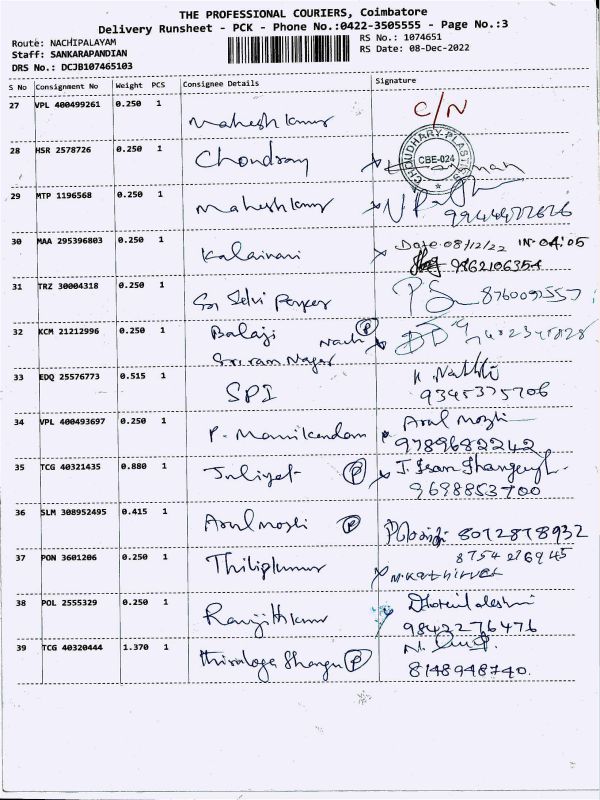 THE PROFESSIONAL COURIERS, Coimbatore
Delivery Runsheet - PCK - Phone No.:0422-3505555 - Page No.:3
Route: NACHIPALAYAM
RS No.: 1074651
Staff: SANKARAPANDIAN
RS Date: 08-Dec-2022
DRS No.: DCJB107465103
S No Consignment No Weight PCS Consignee Details Signature
27 VPL 400499261 0.250 1 Maheshkumar C/N
CHOUDHARY PLASTICS
CBE-024
28 HSR 2578726 0.250 1
29 MTP 1196568 0.250 1 Maheshkumar
30 MAA 295396803 0.250 1 Kalaivani
Date 08/12/22 IN 04:05
9862106354
31 TRZ 30004318 0.250 1 Sri Selvi 8760092557
32 KCM 21212996 0.250 1 Balaji P
Sriram Nagar
33 EDQ 25576773 0.515 1 SPI
9345375706
34 VPL 400493697 0.250 1 P. Manikandan Arul mozhi
9789682242
35 TCG 40321435 0.880 1 Juliyet P
9698853700
36 SLM 308952495 0.415 1 Arulmozhi P 8072878932
37 PON 3601206 0.250 1 Thilipkumar 8754276945
M. Kathirvel
38 POL 2555329 0.250 1 Ranjithkumar
9842276476
39 TCG 40320444 1.370 1 P
8148948740.